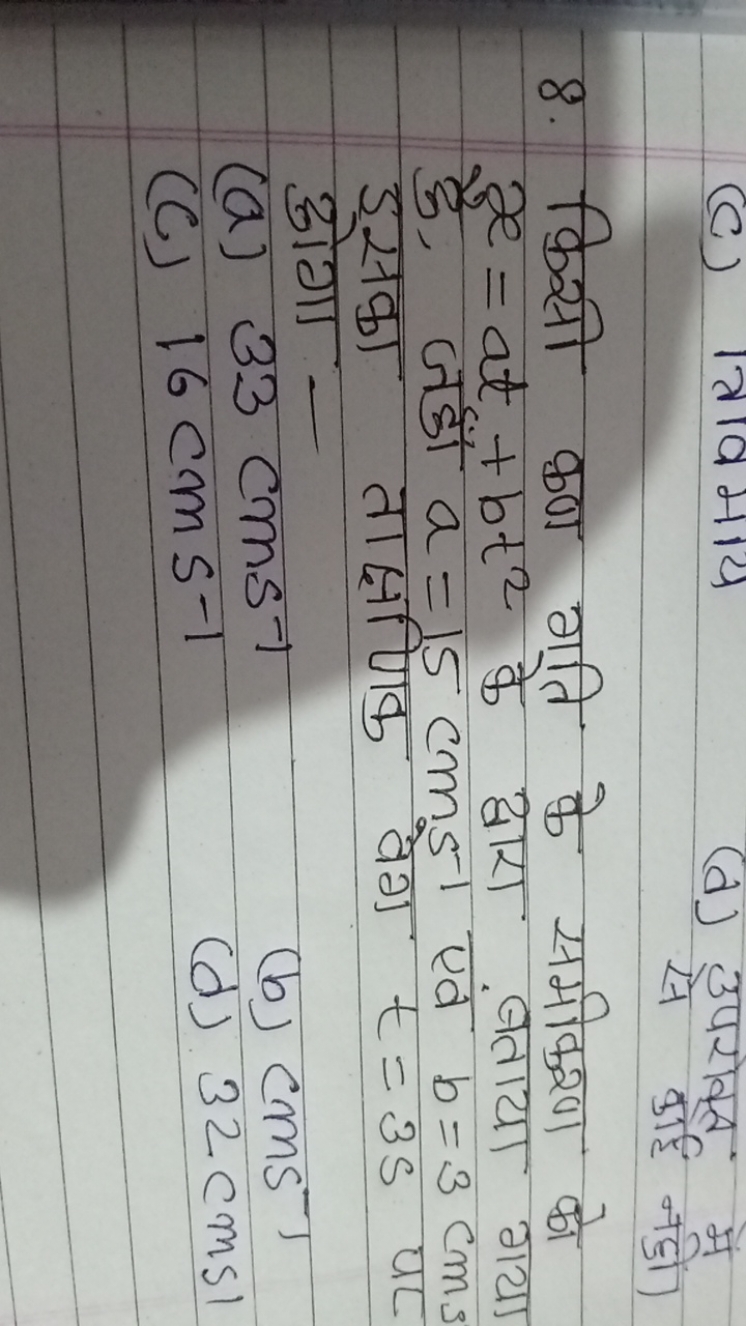 (c) त्रिविमीय (d) उपरोक्त में
से कोई नहीं)
8. किसी कण गति के समीकरण को
x = at + bt² के द्वारा बताया गया
है, जहाँ a = 15 cms⁻¹ एवं b = 3 cms
इसका तात्क्षणिक वेग t = 3s पर
होगा —
(a) 33 cms⁻¹ (b) cms⁻¹
(c) 16 cms⁻¹ (d) 32 cms1